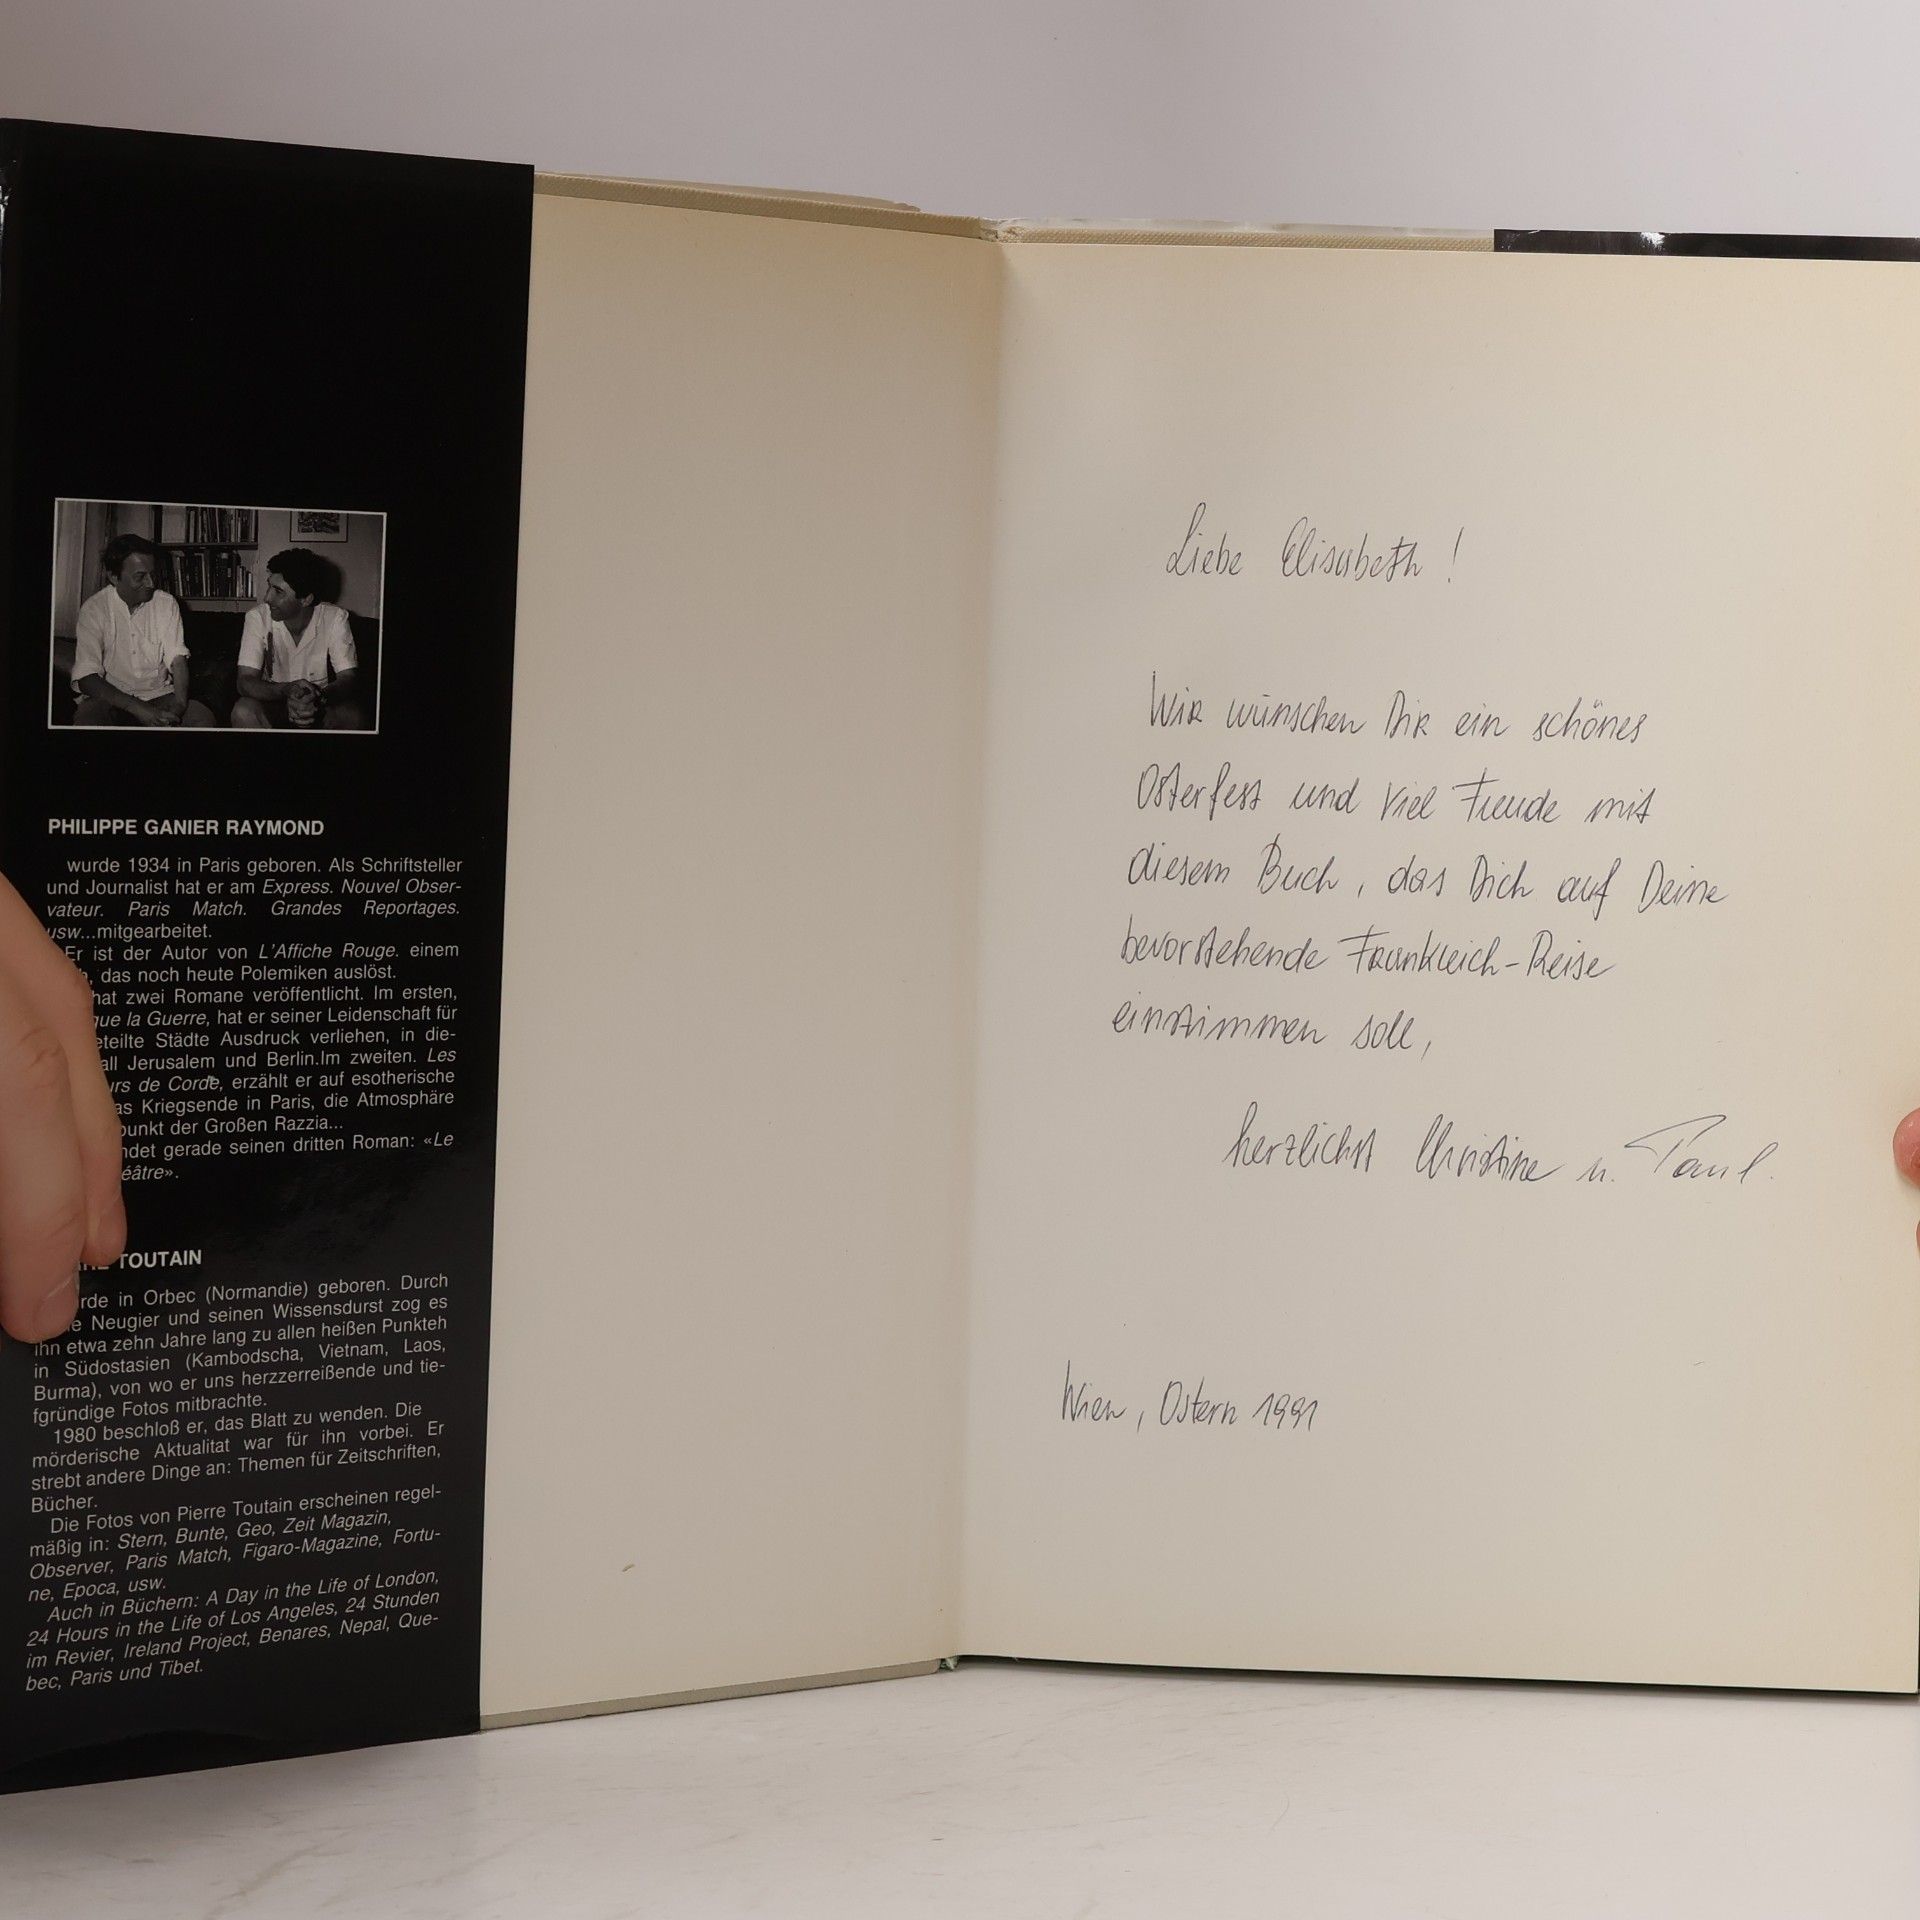 PHILIPPE GANIER RAYMOND
wurde 1934 in Paris geboren. Als Schriftsteller
und Journalist hat er am Express. Nouvel Obser-
vateur. Paris Match. Grandes Reportages.
usw...mitgearbeitet.
Er ist der Autor von L'Affiche Rouge. einem
das noch heute Polemiken auslöst.
hat zwei Romane veröffentlicht. Im ersten,
que la Guerre, hat er seiner Leidenschaft für
Städte Ausdruck verliehen, in die-
Jerusalem und Berlin.Im zweiten. Les
de Corde, erzählt er auf esotherische
Kriegsende in Paris, die Atmosphäre
der Großen Razzia...
gerade seinen dritten Roman: «Le
TOUTAIN
in Orbec (Normandie) geboren. Durch
Neugier und seinen Wissensdurst zog es
ihn etwa zehn Jahre lang zu allen heißen Punkteh
in Südostasien (Kambodscha, Vietnam, Laos,
Burma), von wo er uns herzzerreißende und tie-
fgründige Fotos mitbrachte.
1980 beschloß er, das Blatt zu wenden. Die
mörderische Aktualitat war für ihn vorbei. Er
strebt andere Dinge an: Themen für Zeitschriften,
Bücher.
Die Fotos von Pierre Toutain erscheinen regel-
mäßig in: Stern, Bunte, Geo, Zeit Magazin,
Observer, Paris Match, Figaro-Magazine, Fortu-
ne, Epoca, usw.
Auch in Büchern: A Day in the Life of London,
24 Hours in the Life of Los Angeles, 24 Stunden
im Revier, Ireland Project, Benares, Nepal, Que-
bec, Paris und Tibet.
Liebe Elisabeth !
Wir wünschen Dir ein schönes
Osterfest und viel Freude mit
diesem Buch, das Dich auf Deine
bevorstehende Frankreich-Reise
einstimmen soll,
herzlichst Christine u. Paul.
Wien, Ostern 1991